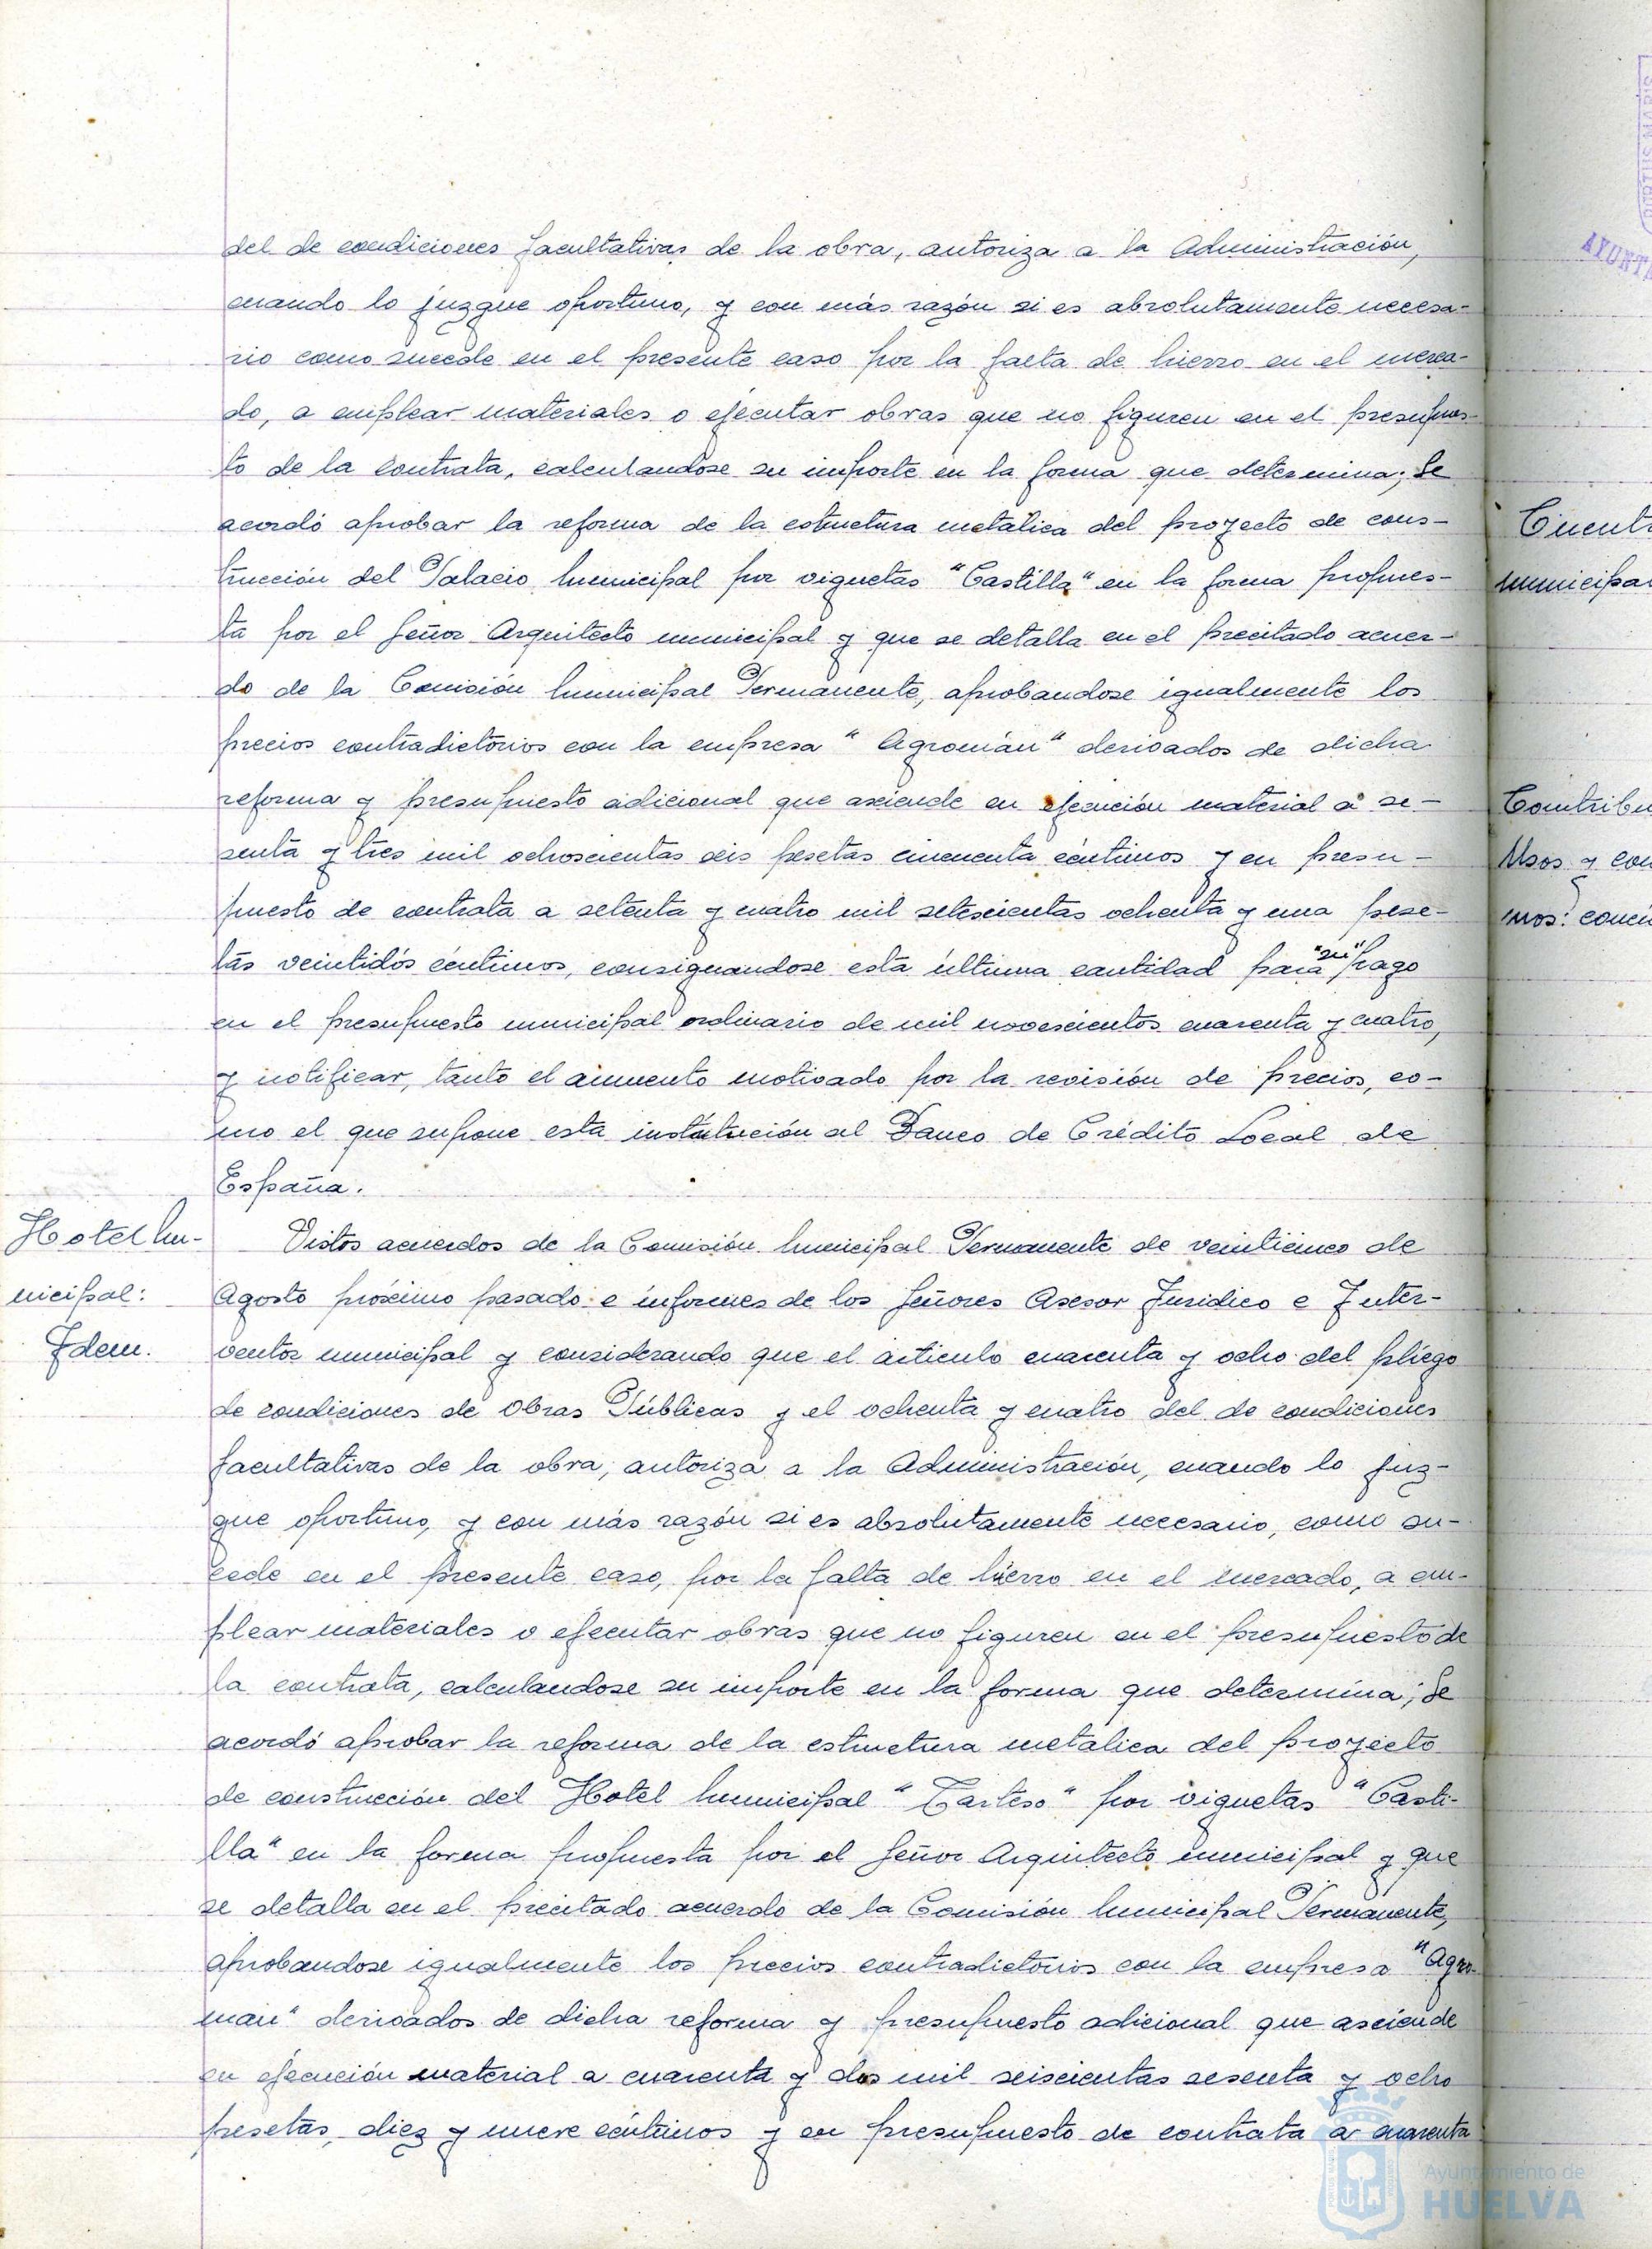 del de condiciones facultativas de la obra, autoriza a la Administración,
cuando lo juzgue oportuno, y con más razón si es absolutamente necesa-
rio como sucede en el presente caso por la falta de hierro en el merca-
do, a emplear materiales o ejecutar obras que no figuren en el presupues-
to de la contrata, calculandose su importe en la forma que determina; Se
acordó aprobar la reforma de la estructura metalica del proyecto de cons-
trucción del Palacio Municipal por viguetas "Castilla" en la forma propues-
ta por el Señor Arquitecto municipal y que se detalla en el precitado acuer-
do de la Comisión Municipal Permanente, aprobandose igualmente los
precios contradictorios con la empresa "Agromán" derivados de dicha
reforma y presupuesto adicional que asciende en ejecución material a se-
senta y tres mil ochoscientas seis pesetas cincuenta céntimos y en presu-
puesto de contrata a setenta y cuatro mil setescientas ochenta y una pese-
tas veintidós céntimos, consignandose esta última cantidad para "su" pago
en el presupuesto municipal ordinario de mil novescientos cuarenta y cuatro,
y notificar, tanto el aumento motivado por la revisión de precios, co-
mo el que supone esta institución al Banco de Crédito Local de
España.
Hotel Mu-
nicipal:
Idem.
Vistos acuerdos de la Comisión Municipal Permanente de veinticinco de
Agosto próximo pasado e informes de los Señores Asesor Juridico e Inter-
ventor municipal y considerando que el artículo cuarenta y ocho del pliego
de condiciones de Obras Públicas y el ochenta y cuatro del de condiciones
facultativas de la obra, autoriza a la Administración, cuando lo juz-
gue oportuno, y con más razón si es absolutamente necesario, como su-
cede en el presente caso, por la falta de hierro en el mercado, a em-
plear materiales o ejecutar obras que no figuren en el presupuesto de
la contrata, calculandose su importe en la forma que determina; Se
acordó aprobar la reforma de la estructura metalica del proyecto
de construcción del Hotel Municipal "Tarteso" por viguetas "Casti-
lla" en la forma propuesta por el Señor Arquitecto municipal y que
se detalla en el precitado acuerdo de la Comisión Municipal Permanente,
aprobandose igualmente los precios contradictorios con la empresa "Agro-
man" derivados de dicha reforma y presupuesto adicional que asciende
en ejecución material a cuarenta y dos mil seiscientas sesenta y ocho
pesetas, diez y nueve céntimos y en presupuesto de contrata a cuarenta
Cuent
municipal
Contribu
Usos y con
mos: conci
AYUNTA
Ayuntamiento de
HUELVA